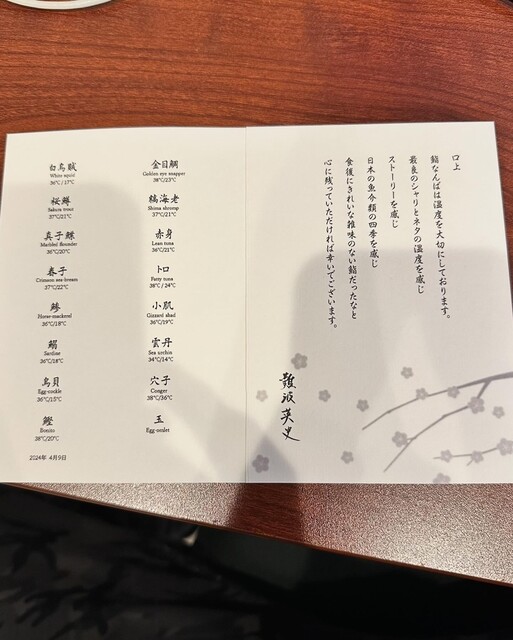 白烏賊
White squid
36℃ / 17℃
桜鱒
Sakura trout
37℃/21℃
真子鰈
Marbled flounder
36℃/20℃
春子
Crimson sea-bream
37℃/22℃
鯵
Horse-mackerel
36℃/18℃
鰯
Sardine
36℃/18℃
鳥貝
Egg-cockle
36℃/15℃
鰹
Bonito
38℃/20℃
2024年 4月9日
金目鯛
Golden eye snapper
38℃/23℃
縞海老
Shima shromp
37℃/21℃
赤身
Lean tuna
36℃/21℃
トロ
Fatty tuna
38℃ / 24℃
小肌
Gizzard shad
36℃/19℃
雲丹
Sea urchin
34℃/14℃
穴子
Conger
38℃/36℃
玉
Egg-omlet
口上
鮨なんばは温度を大切にしております。
最良のシャリとネタの温度を感じ
ストーリーを感じ
日本の魚介類の四季を感じ
食後にきれいな雑味のない鮨だったなと
心に残っていただければ幸いでございます。
難波英史